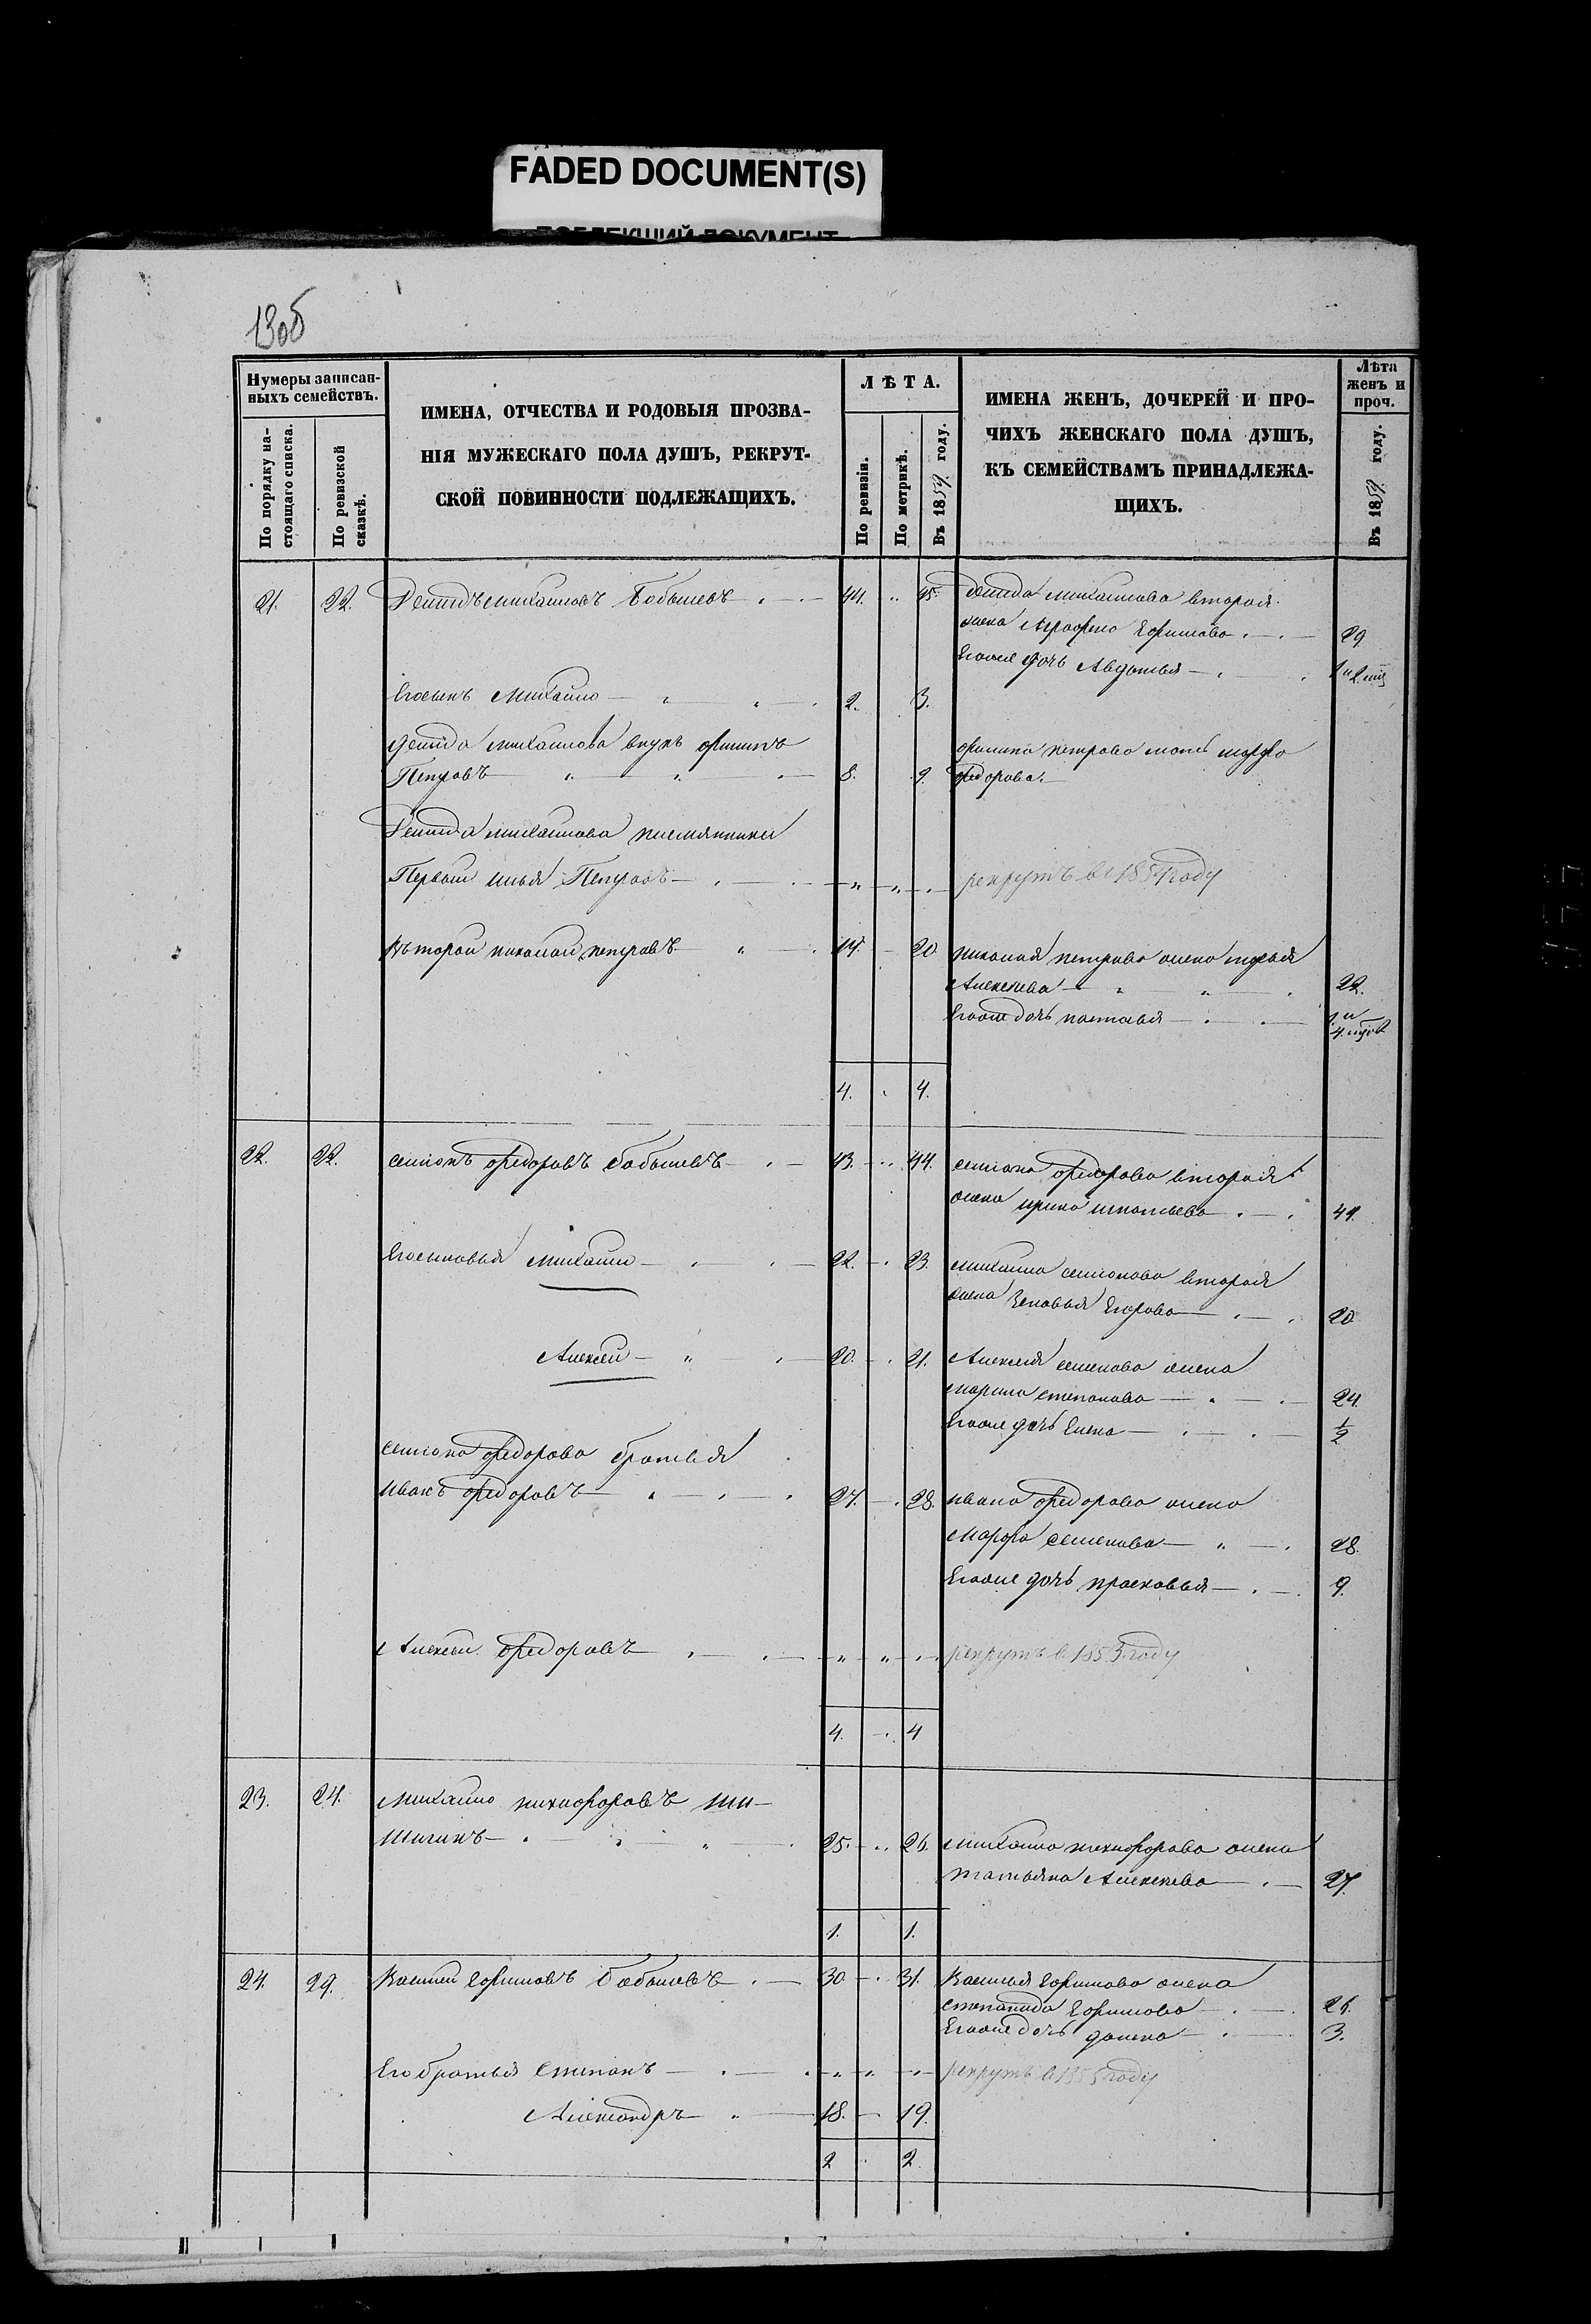 FADED DOCUMENT(S)
13об
Нумеры записан-
ныхъ семействъ.
По порядку на-
стоящаго списка.
По ревизской
сказкѣ.
ИМЕНА, ОТЧЕСТВА И РОДОВЫЯ ПРОЗВА-
НІЯ МУЖЕСКАГО ПОЛА ДУШЪ, РЕКРУТ-
СКОЙ ПОВИННОСТИ ПОДЛЕЖАЩИХЪ.
ЛѢТА.
По ревизіи.
По метрикѣ.
Въ 1859 году.
ИМЕНА ЖЕНЪ, ДОЧЕРЕЙ И ПРО-
ЧИХЪ ЖЕНСКАГО ПОЛА ДУШЪ,
КЪ СЕМЕЙСТВАМЪ ПРИНАДЛЕЖА-
ЩИХЪ.
Лѣта
женъ и
проч.
Въ 1859 году.
21. 22. Демидъ михаиловъ Бобышевъ 44. 45. демида михаилова вторая
жена Аграфена Ефимова 29
Егоже дочь Авдотья
Егосынъ Михаило 2. 3.
демида михаилова внукъ филипъ
Петровъ 8. 9.
филипа петрова мать
федорова.
Демида михаилова племянники
Первый илья Петровъ рекрутъ в 1854 году
Второй николай петровъ 19. 20 николая петрова жена
Алексеева 22.
Егоже дочь наталья 1 и
4. 4.
22. 22. семионъ федоровъ бобышевъ 43. 44. семиона федорова вторая
жена ирина игнатьева 41.
Егосыновья михаило 22. 23. михаила семионова вторая
жена Зеновья Егорова 20
Алексеи 20. 21. Алексея семенова жена
марина степанова 24.
Егоже дочь Елена 1/2
семиона федорова братья
иванъ федоровъ 27. 28. ивана федорова жена
марфа семенова 28.
Егоже дочь прасковья 9.
Алексеи федоровъ рекрутъ в 1853 году
4. 4
23. 24. Михаило никифоровъ ши-
шигинъ 25. 26. михаила никифорова жена
татьяна Алексеева 27.
1. 1.
24. 29. Василий Ефимовъ бобышевъ 30 31. Василья Ефимова жена
степанида Ефимова 26.
Егоже дочь 3.
Его братья Степанъ рекрутъ в 1855 году
Александръ 18. 19.
2 2